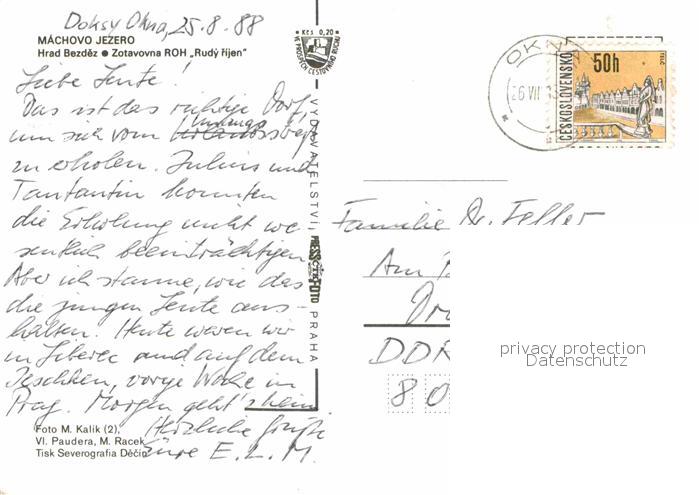 Doksy Okna, 25.8.88
MÁCHOVO JEZERO
Hrad Bezděz ● Zotavovna ROH „Rudý říjen"
Kčs 0,20
VE PROSPĚCH CESTOVNÍHO RUCHU
Liebe Leute!
Das ist das richtige Dorf,
um sich vom Umzugs
zu erholen. Julius und
Tantantin konnten
die Erholung nicht we-
sentlich beeinträchtigen.
Aber ich staune, wie das
die jungen Leute aus-
halten. Heute waren wir
in Liberec und auf dem
Jeschken, vorige Woche in
Prag. Morgen geht's heim
Herzliche Grüße
Eure E. L. M.
Foto M. Kalík (2),
Vl. Paudera, M. Racek
Tisk Severografia Děčín
VYDAVATELSTVÍ
PRESSFOTO
ČTK
PRAHA
OKNA
26.VII
ČESKOSLOVENSKO
50h
TELČ
Familie Dr. Feller
Am
DDR
80
privacy protection
Datenschutz